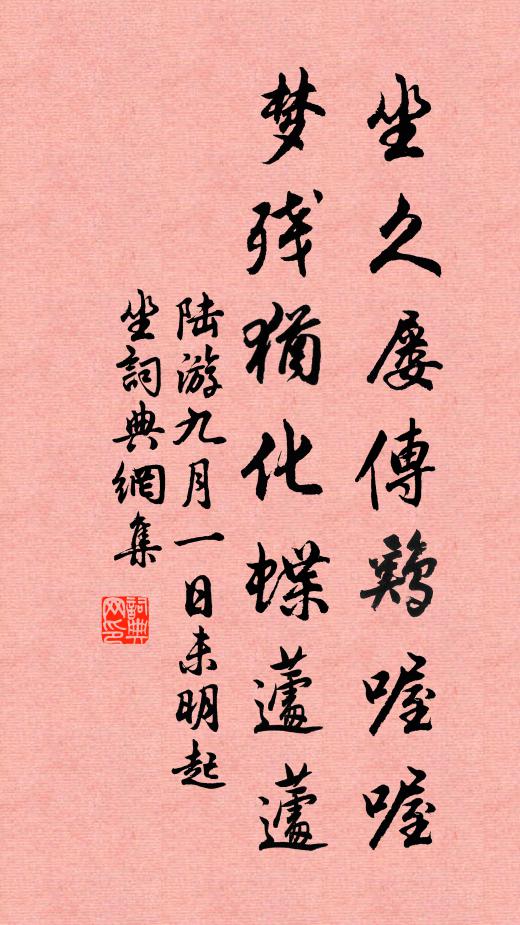 坐久屢傳鷄喔喔
梦残猶化蝶蘧蘧
陆游九月一日未明起
坐詞典網集
詞典网印